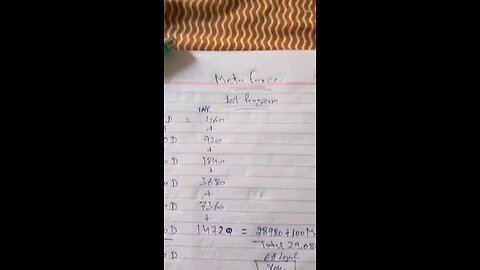 Meta force
1st Program
INR
D = 460
+
D 920
+
D 1840
+
D 3680
+
D 7360
+
D 14720 = 28980+100M
Total 29,08
D
You